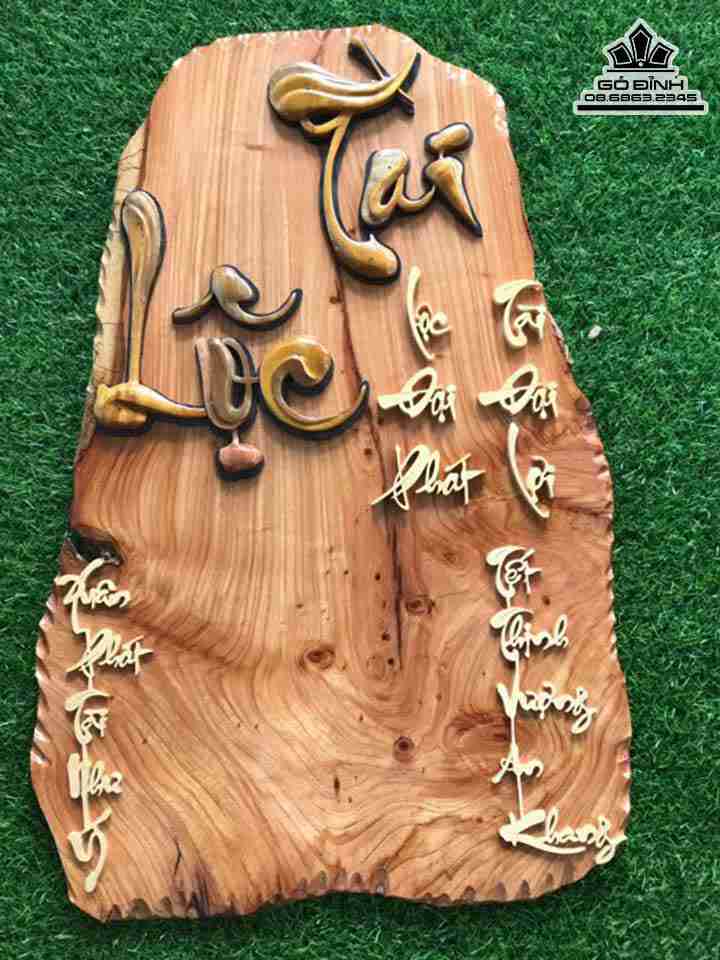 GỖ ĐỈNH
08.6863.2345
Tài
Lộc
Tài Đại Lợi
Lộc Đại Phát
Tết Thịnh Vượng An Khang
Xuân Phát Tài Như Ý